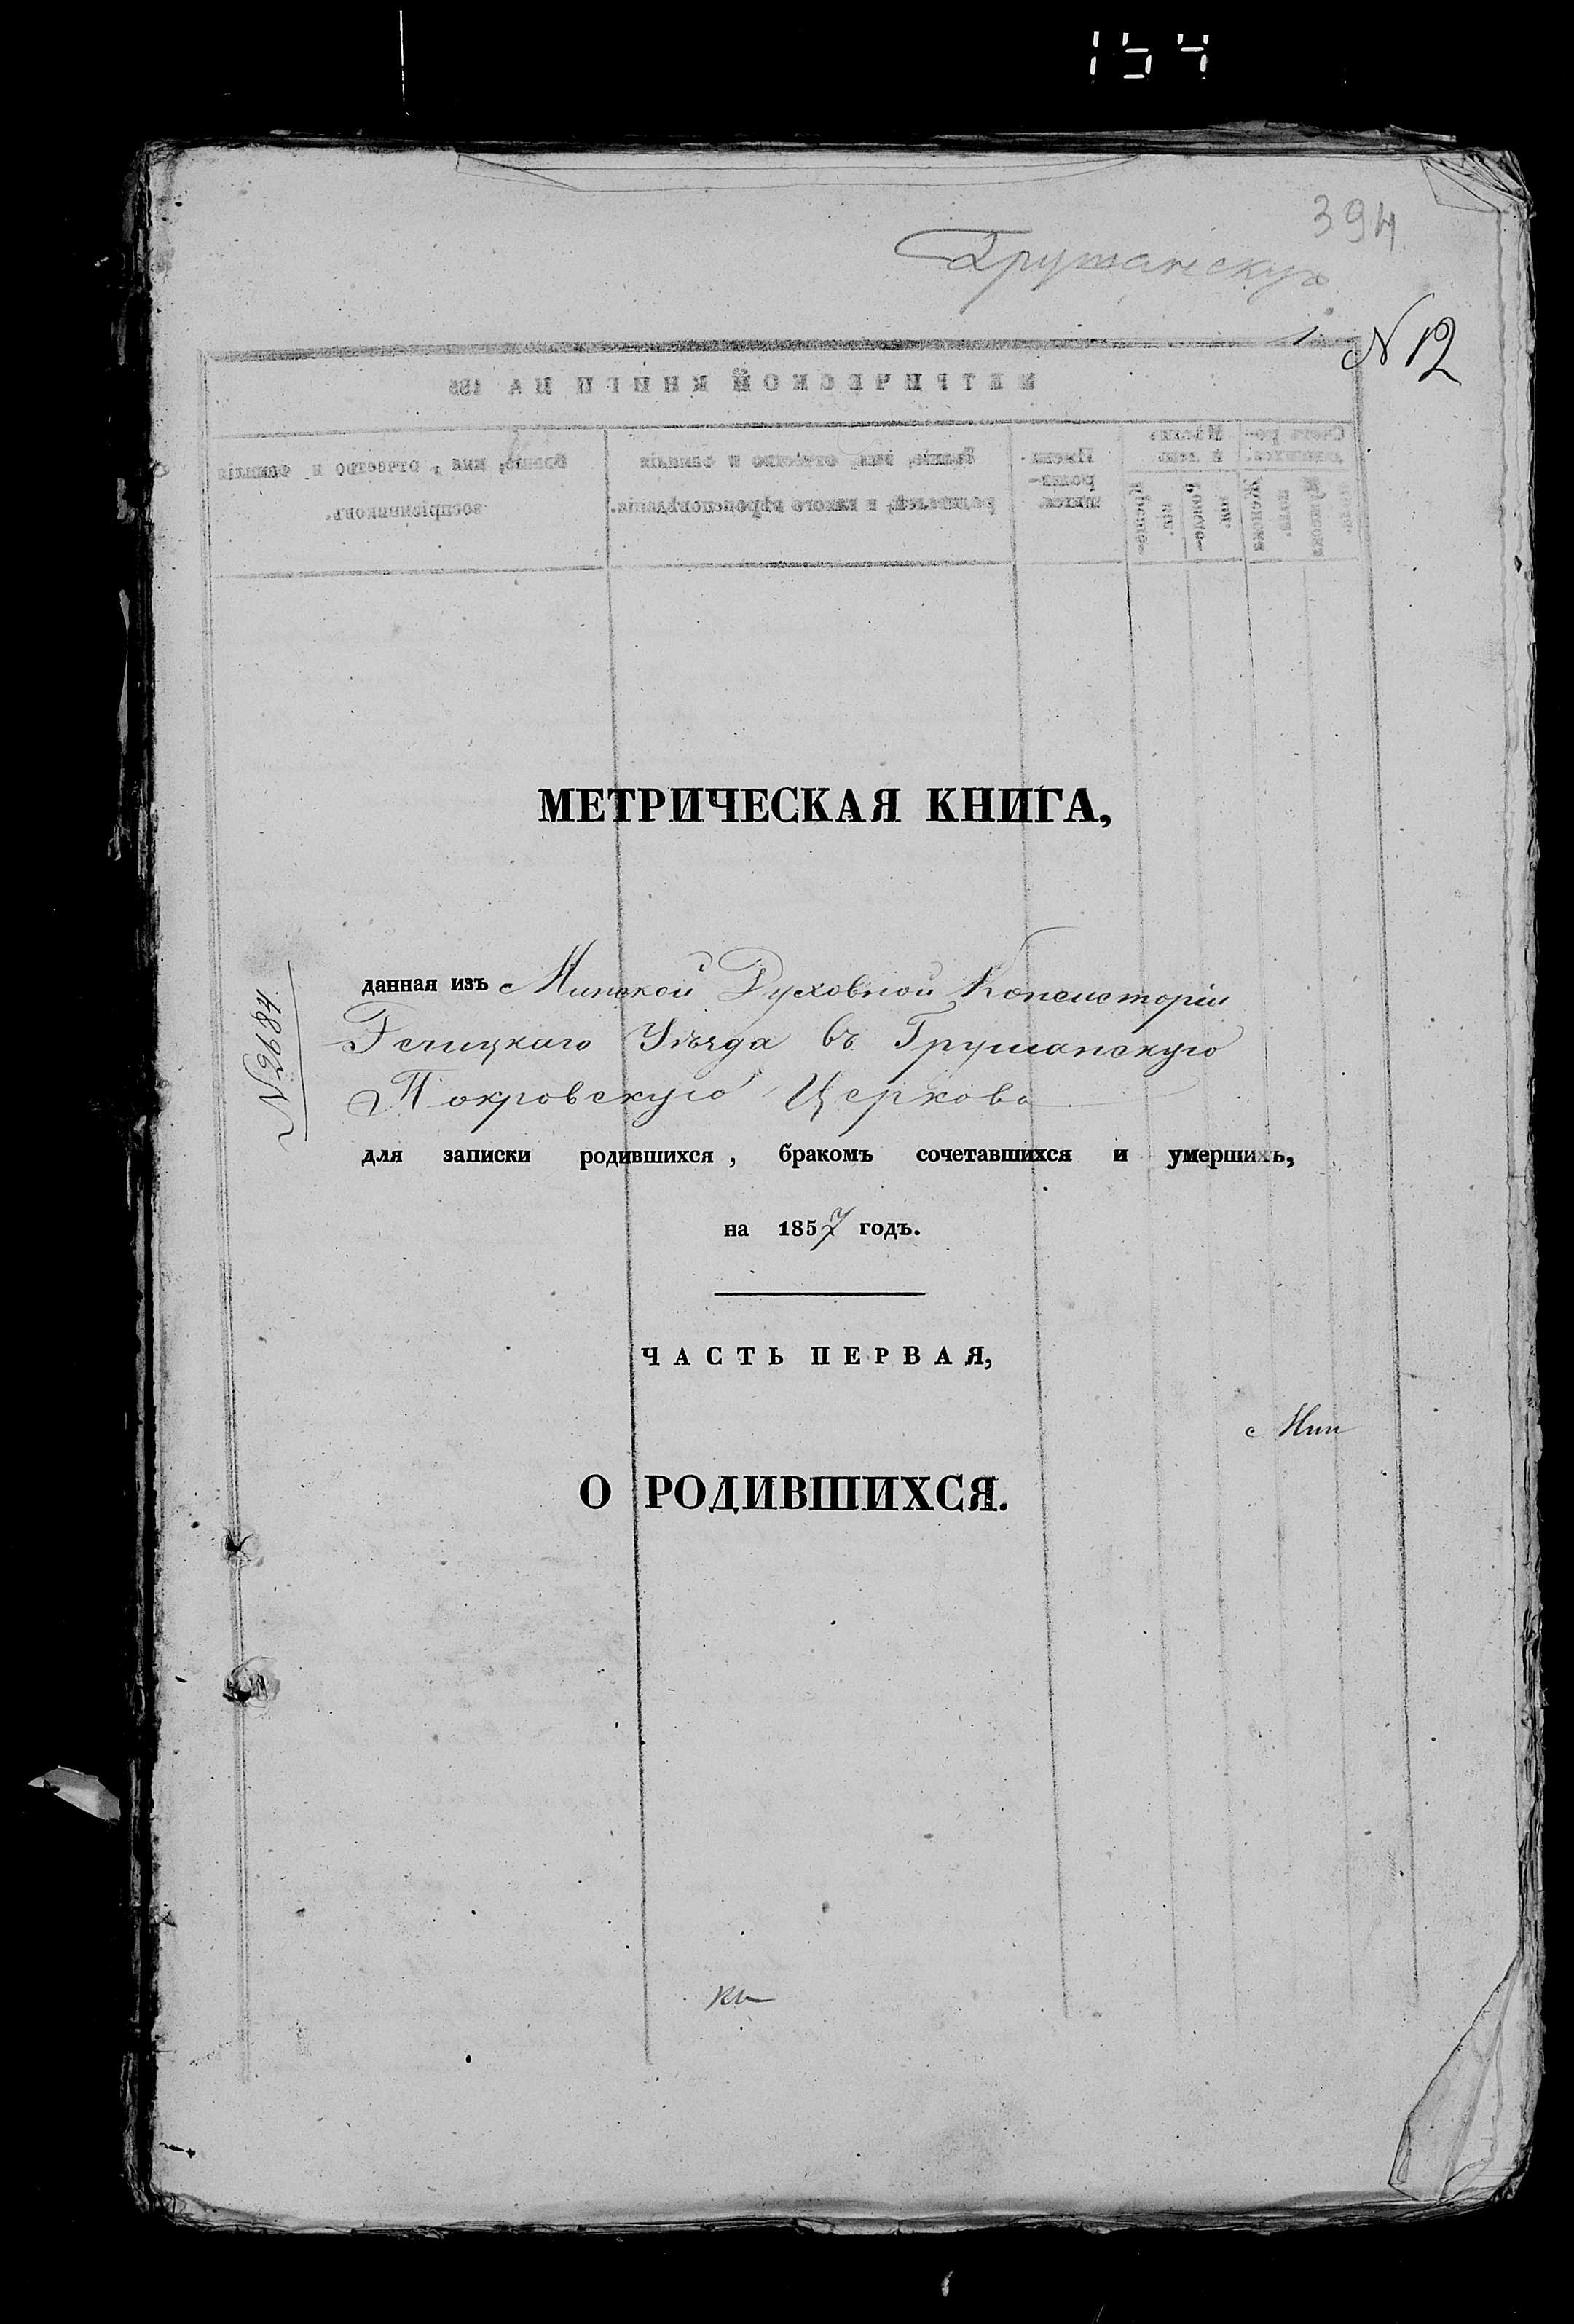 154
394
Грушанскую
N 12
МЕТРИЧЕСКАЯ КНИГА,
данная изъ Минской Духовной Консисторіи
Речицкаго Уѣзда въ Грушанскую
Покровскую Церковь
N 2684
для записки родившихся, бракомъ сочетавшихся и умершихъ,
на 1857 годъ.
ЧАСТЬ ПЕРВАЯ,
с Мин
О РОДИВШИХСЯ.